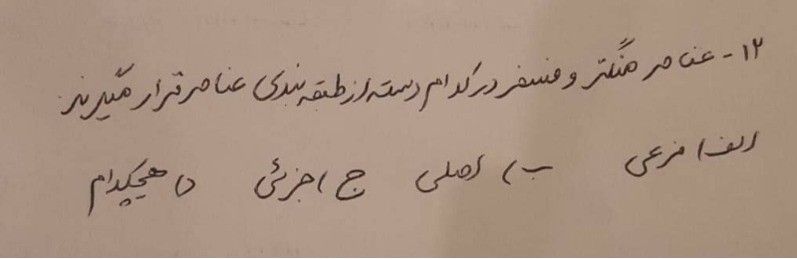 ۱۲- عناصر منگنز و فسفر در کدام دسته از طبقه بندی عناصر قرار میگیرند
الف) فرعی ب) اصلی ج) جزئی د) هیچکدام